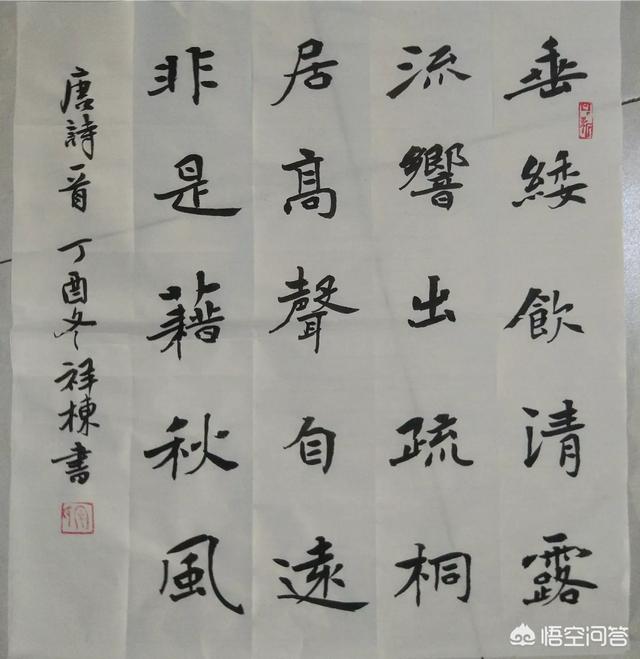 垂緌飲清露
流響出疏桐
居高聲自遠
非是藉秋風
唐詩一首 丁酉冬 祥棟書
悟空问答